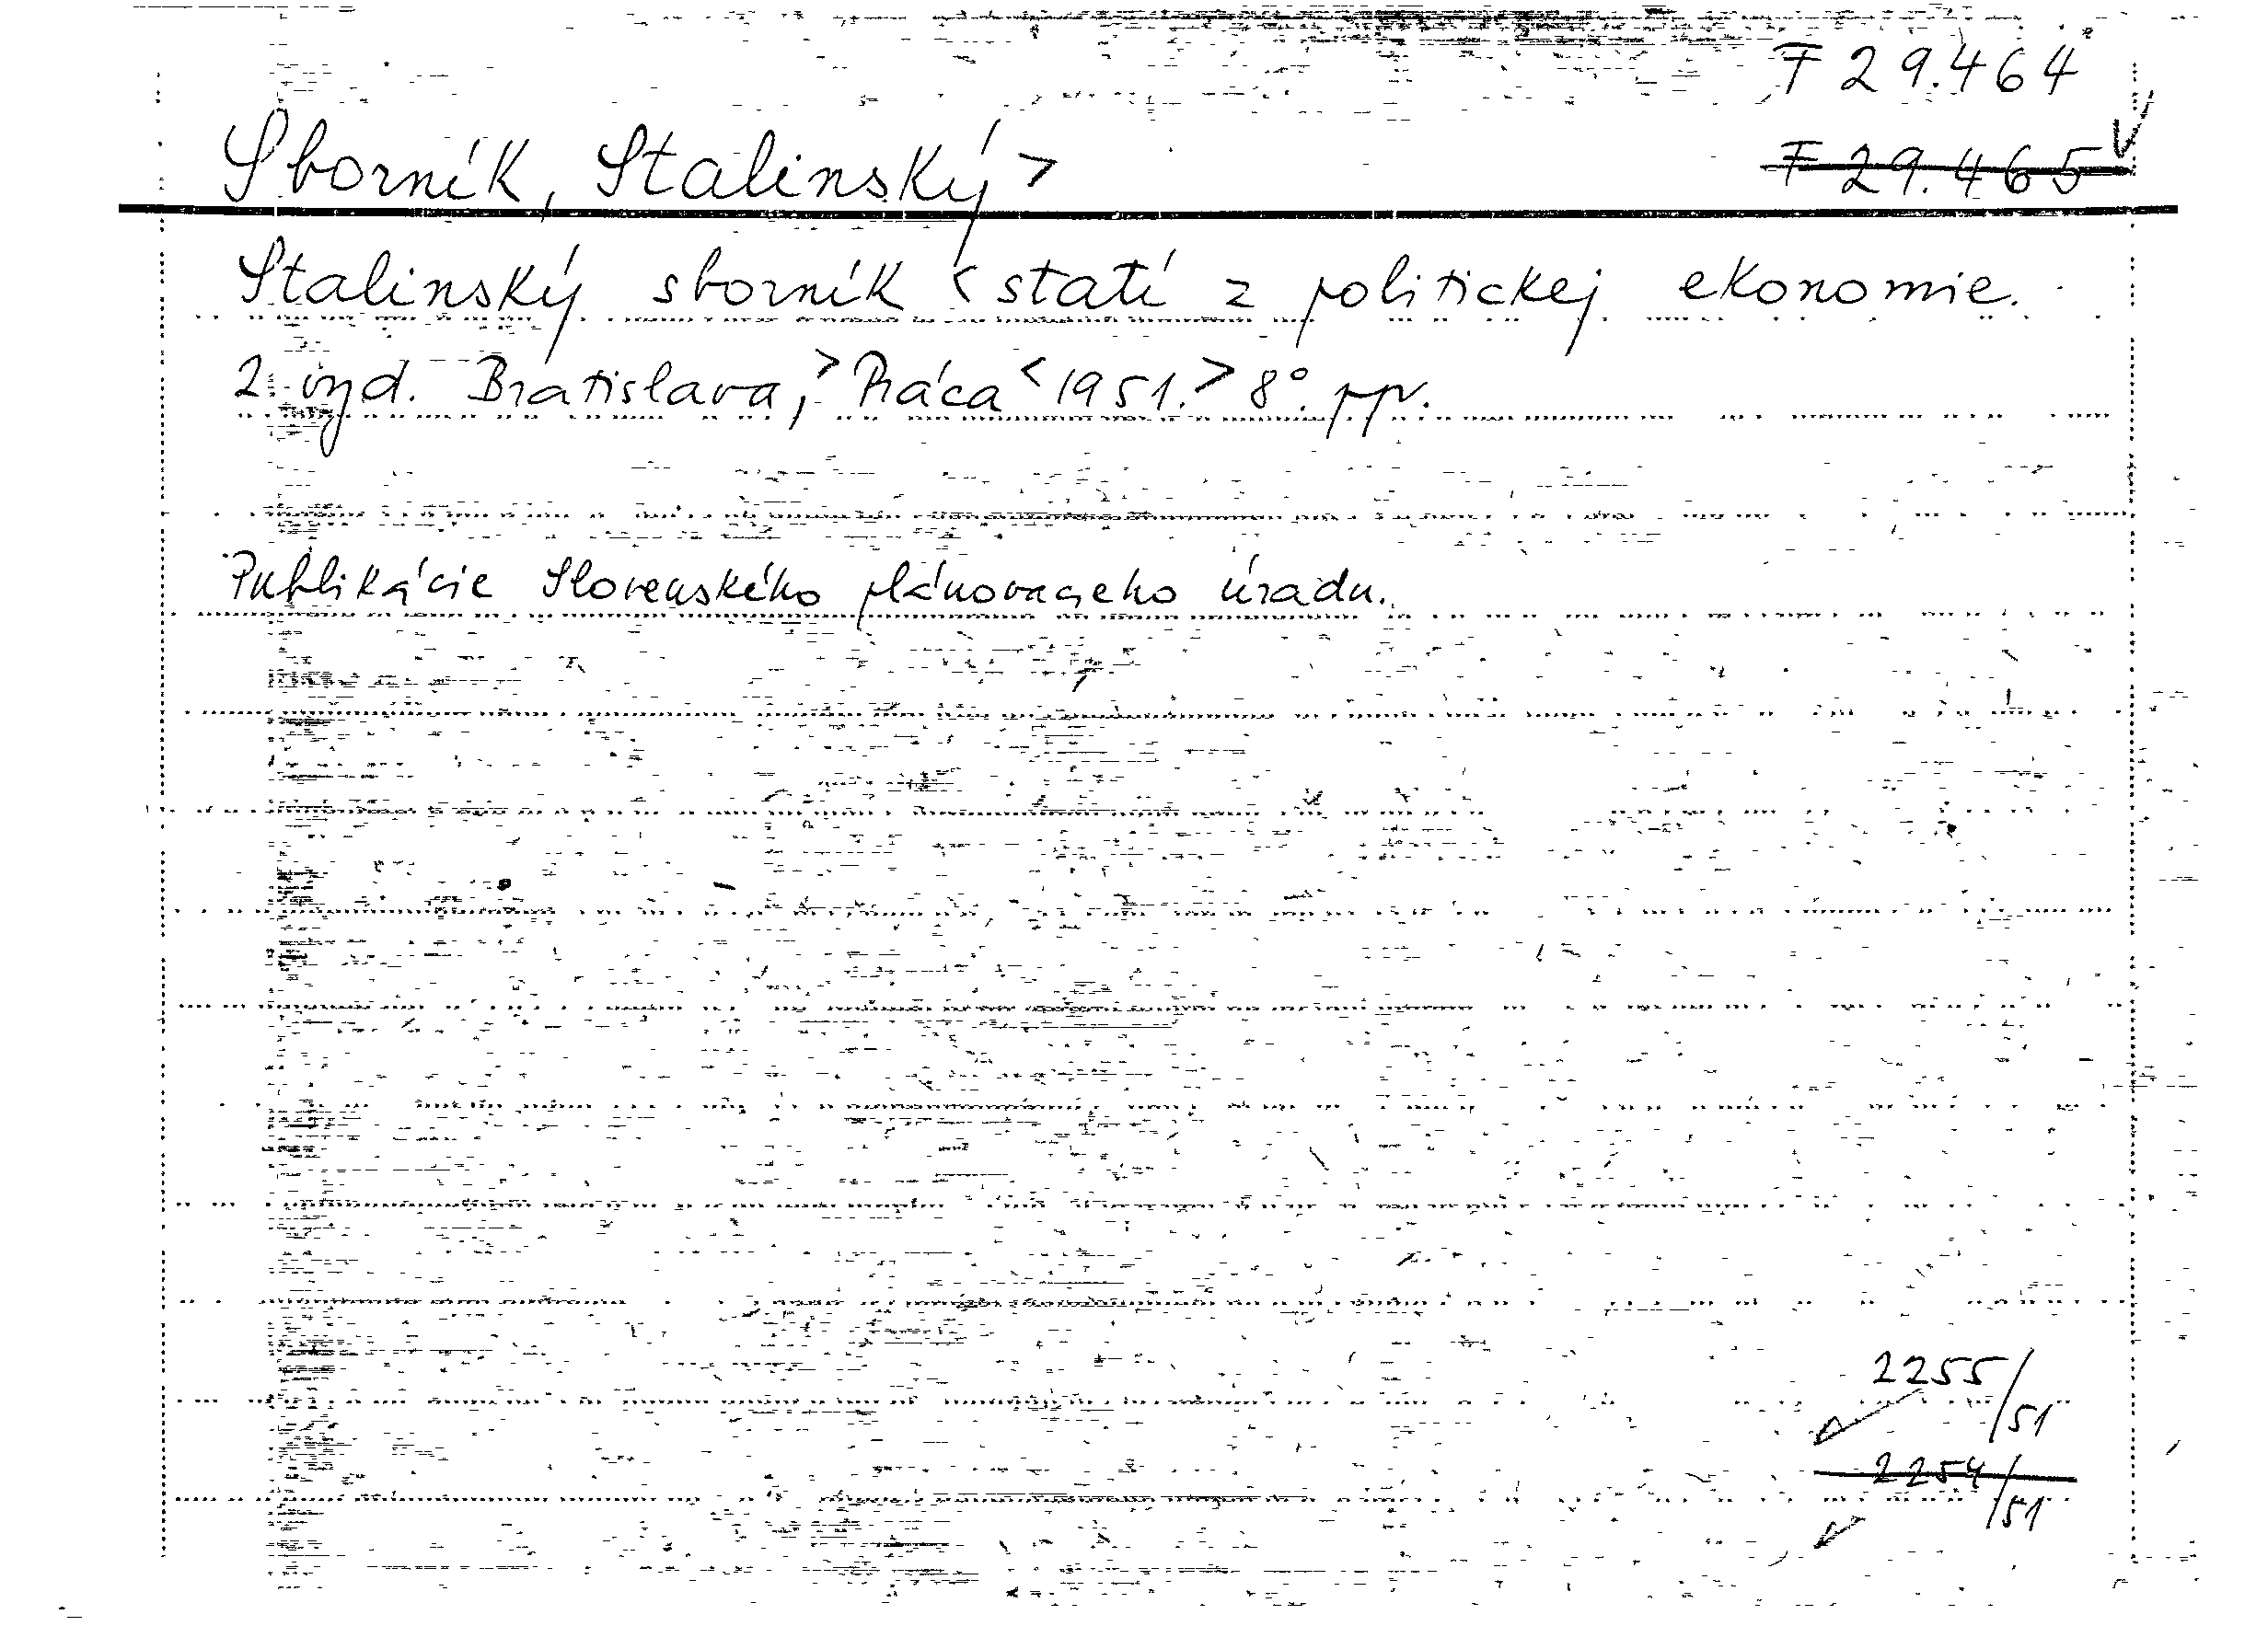 F 29.464
Sborník, Stalinský >
F 29.465
Stalinský sborník < statí z politickej ekonomie.
2. vyd. Bratislava, > Práca < 1951. > 8°. ppv.
Publikácie Slovenského plánovacieho úradu.
2255/51
2254/51